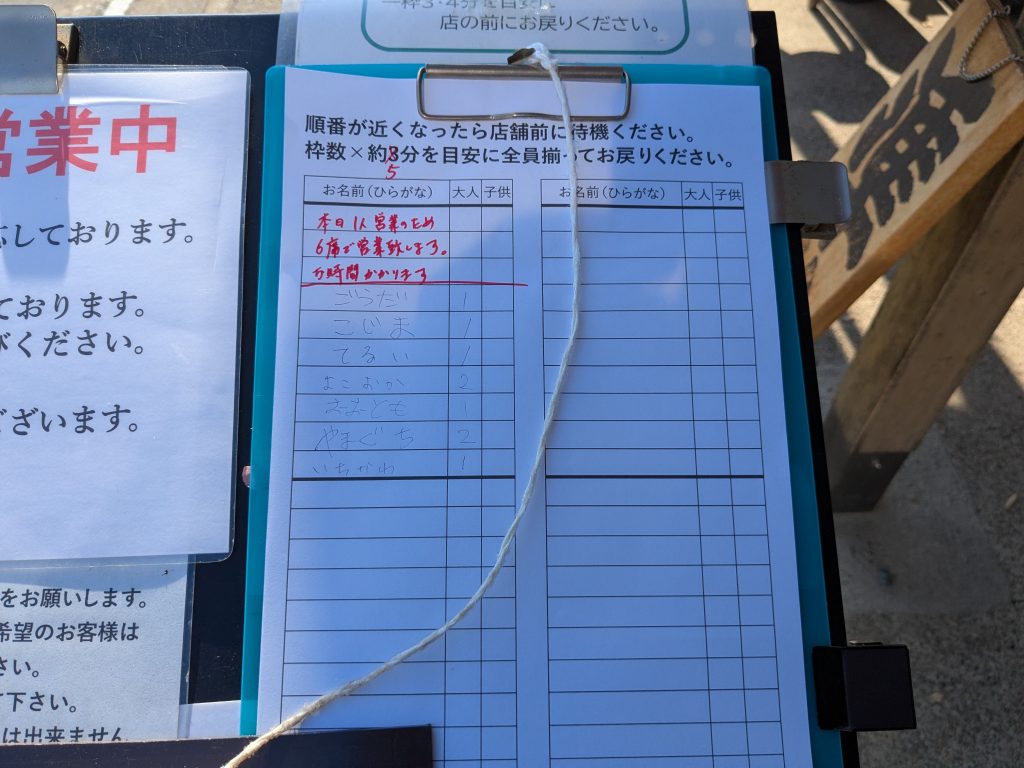 一枠3・4分を目安に
店の前にお戻りください。
営業中
しております。
ております。
びください。
ございます。
をお願いします。
希望のお客様は
さい。
て下さい。
は出来ません
順番が近くなったら店舗前に待機ください。
枠数×約3分を目安に全員揃ってお戻りください。
5
お名前(ひらがな) 大人 子供 お名前(ひらがな) 大人 子供
本日1人営業のため
6席で営業致します。
お時間かかります
ごうだ 1
こじま 1
てるい 1
よこおか 2
おおとも 1
やまぐち 2
いちかわ 1